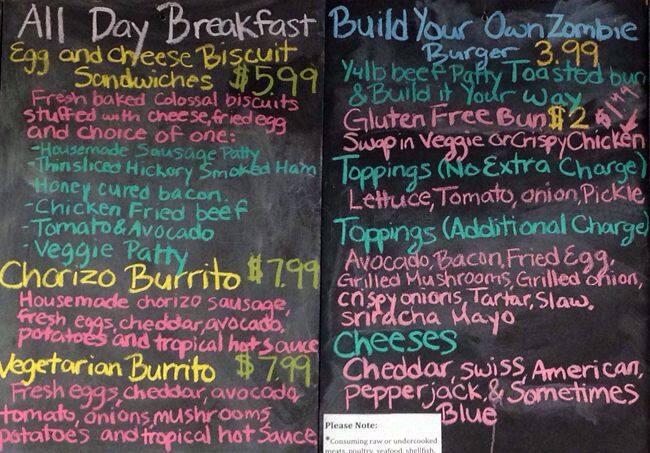 All Day Breakfast
Egg and cheese Biscuit
Sandwiches $5.99
Fresh baked colossal biscuits
stuffed with cheese, fried egg
and choice of one:
-Housemade Sausage Patty
-Thinsliced Hickory Smoked Ham
-Honey cured bacon.
-Chicken Fried beef
-Tomato & Avocado
-Veggie Patty
Chorizo Burrito $7.99
Housemade chorizo sausage,
fresh eggs, cheddar, avocado,
potatoes and tropical hot sauce
Vegetarian Burrito $7.99
Fresh eggs, cheddar, avocado,
tomato, onions, mushrooms,
potatoes and tropical hot sauce
Build Your Own Zombie
Burger 3.99
1/4lb beef Patty Toasted bun
& Build it Your way
Gluten Free Bun $2
Swap in Veggie or Crispy Chicken
Toppings (No Extra Charge)
Lettuce, Tomato, onion, Pickle
Toppings (Additional Charge)
Avocado, Bacon, Fried Egg,
Grilled Mushrooms, Grilled onion,
crispy onions, Tartar, Slaw,
sriracha Mayo
Cheeses
Cheddar, swiss, American,
pepperjack, & Sometimes
Blue
Please Note:
*Consuming raw or undercooked
meats, poultry, seafood, shellfish,